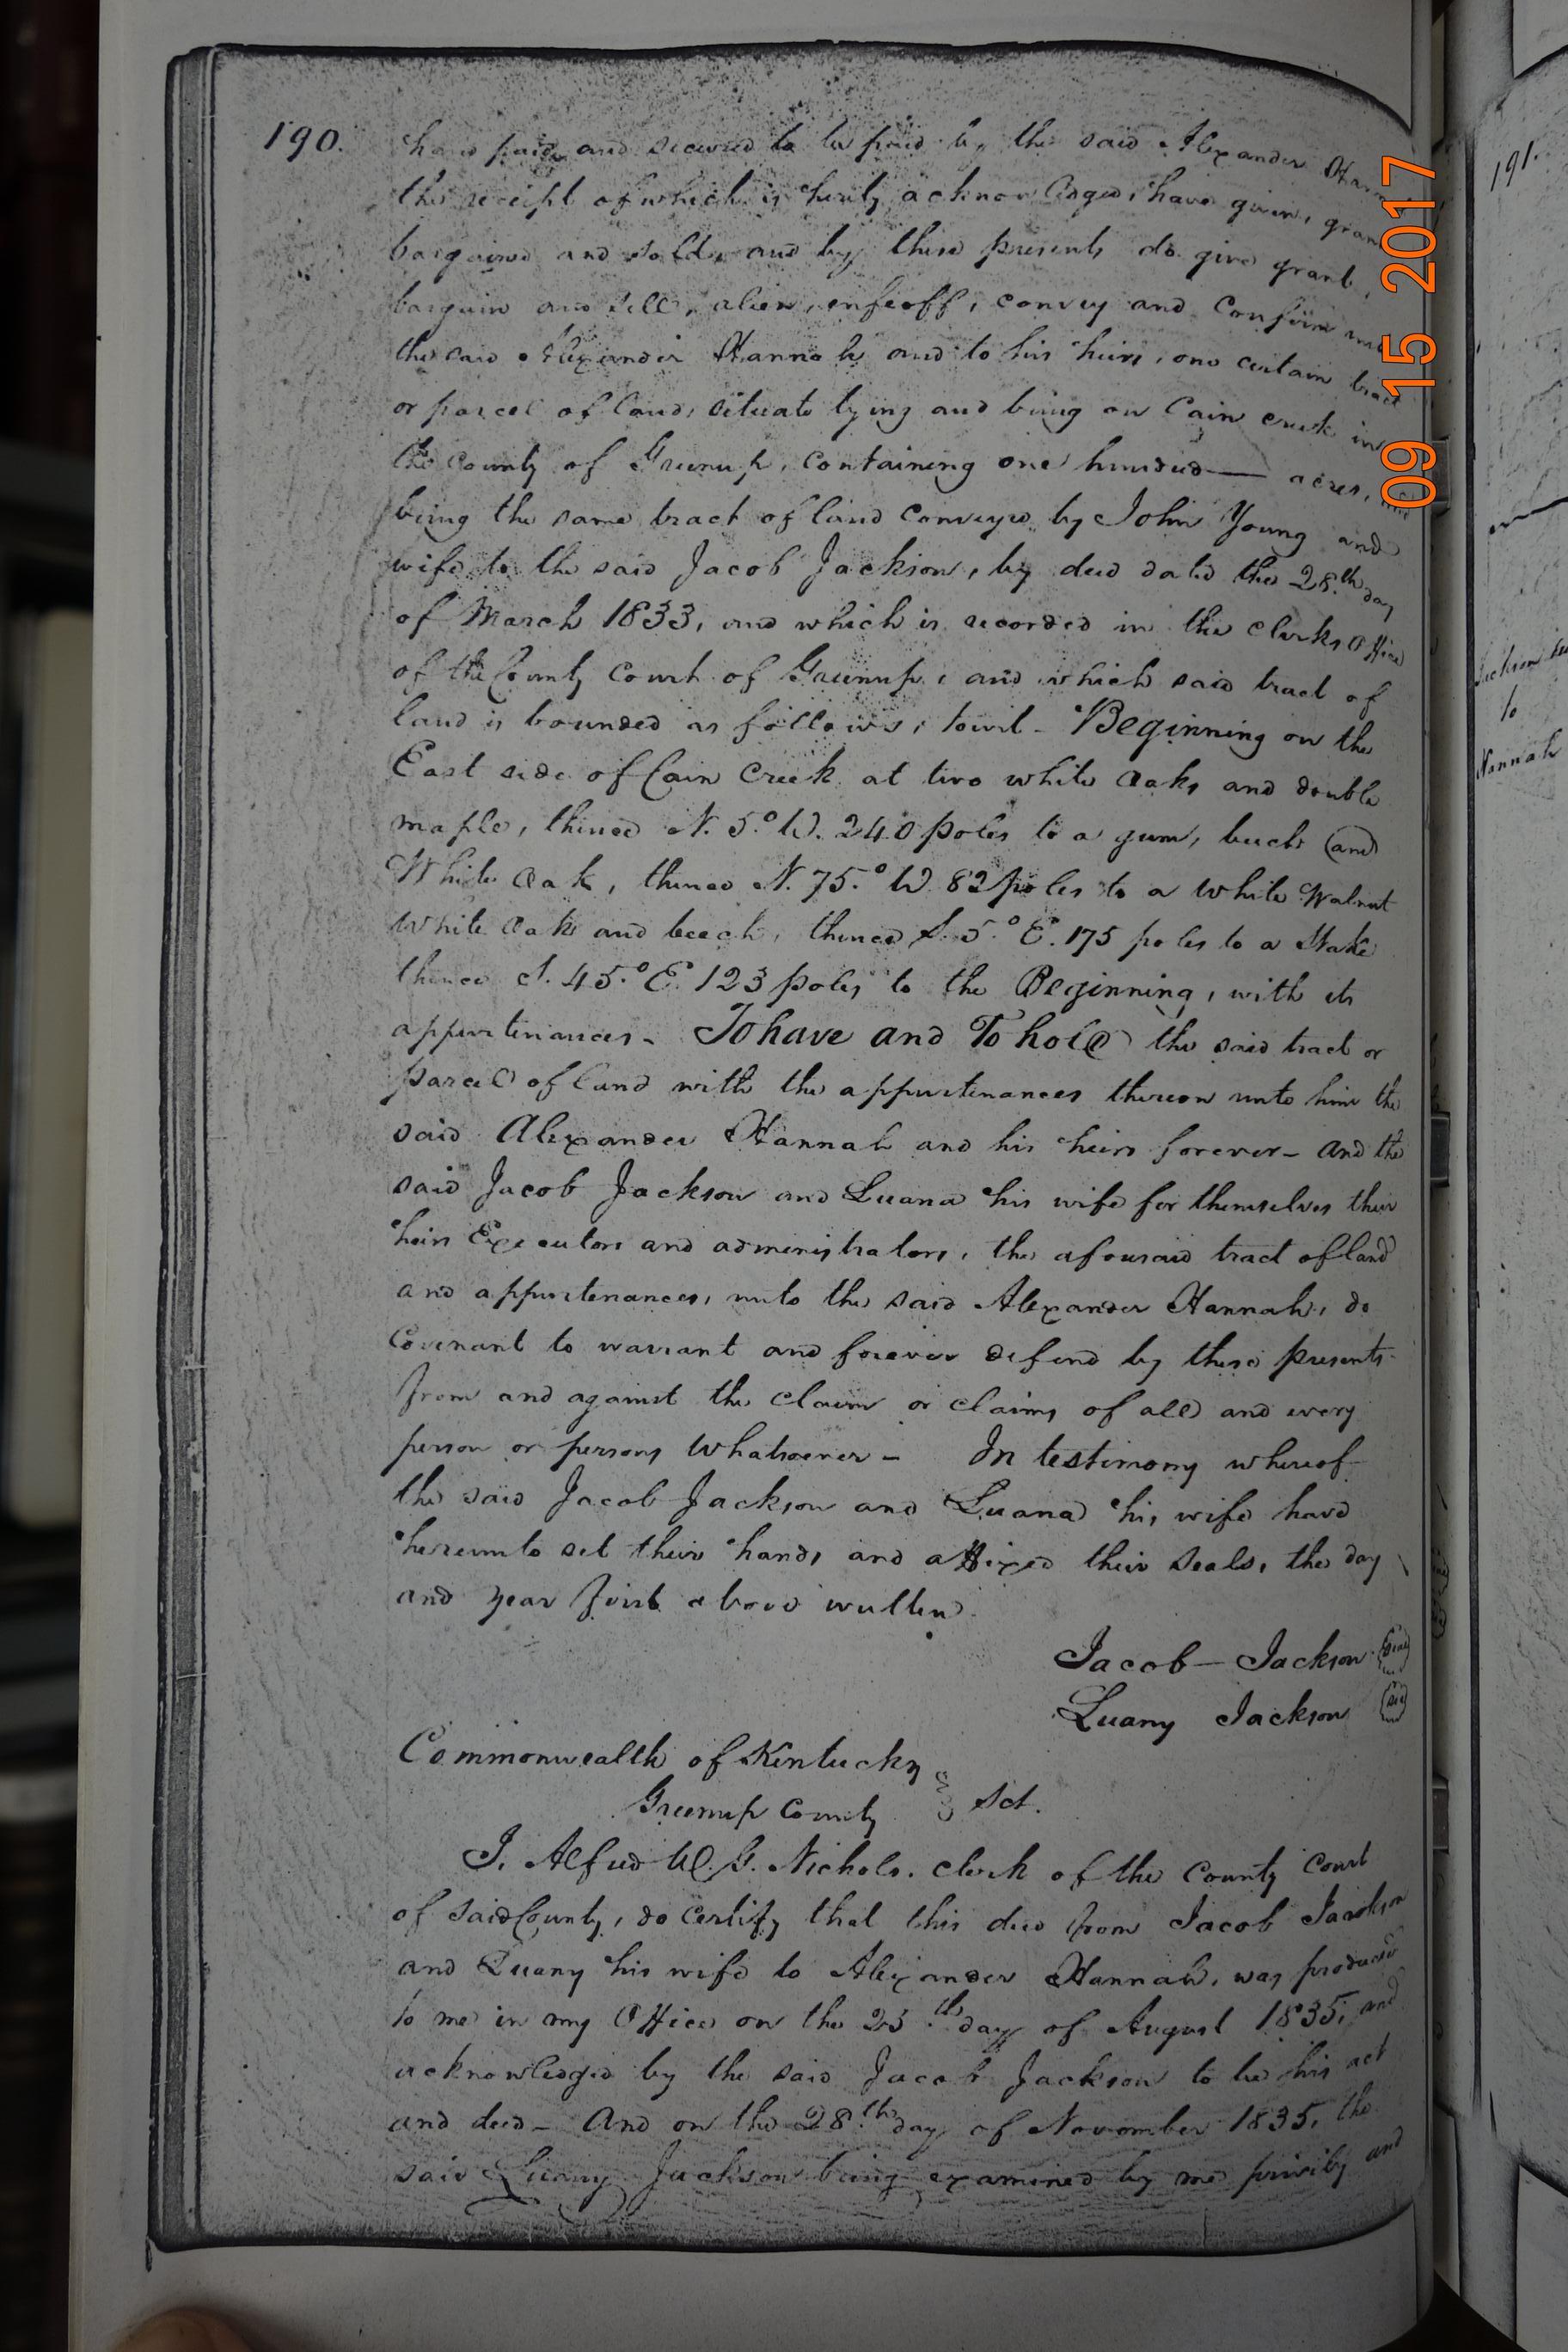 190.
hand paid and secured to be paid by the said Alexander
the receipt of which is hereby acknowledged, have given,
bargained and sold, and by these presents do give grant,
bargain and sell, alien, enfeoff, convey and confirm
the said Alexander Hannah and to his heirs, one certain tract
or parcel of land, situate lying and being on Cain creek in
the County of Greenup, containing one hundred — acres,
being the same tract of land conveyed by John Young and
wife to the said Jacob Jackson, by deed dated the 28.th day
of March 1833, and which is recorded in the clerks Office
of the County Court of Greenup, and which said tract of
land is bounded as follows, towit - Beginning on the
East side of Cain Creek at two white Oaks and double
maple, thence N. 5.° W. 240 poles to a gum, beech (and)
White Oak, thence N. 75.° W. 82 poles to a White Walnut
White Oak and beech, thence S. 5.° E. 175 poles to a Stake
thence S. 45.° E. 123 poles to the Beginning, with its
appurtenances - To have and To hold the said tract or
parcel of land with the appurtenances thereon unto him the
said Alexander Hannah and his heirs forever - And the
said Jacob Jackson and Luana his wife for themselves their
heirs Executors and administrators, the aforesaid tract of land
and appurtenances, unto the said Alexander Hannah, do
Covenant to warrant and forever defend by these presents
from and against the claim or claims of all and every
person or persons Whatsoever - In testimony whereof
the said Jacob Jackson and Luana his wife have
hereunto set their hands and affixed their seals, the day
and year first above written.
Jacob - Jackson (Seal)
Luany Jackson
Commonwealth of Kentucky
Greenup County } Sct.
I, Alfred W. G. Nichols. clerk of the County Court
of Said County, do Certify that this deed from Jacob Jackson
and Luany his wife to Alexander Hannah, was produced
to me in my Office on the 25.th day of August 1835, and
acknowledged by the said Jacob Jackson to be his act
and deed - And on the 28.th day of November 1835, the
said Luany Jackson being examined by me privily and
09 15 2017
191.
to
Hannah